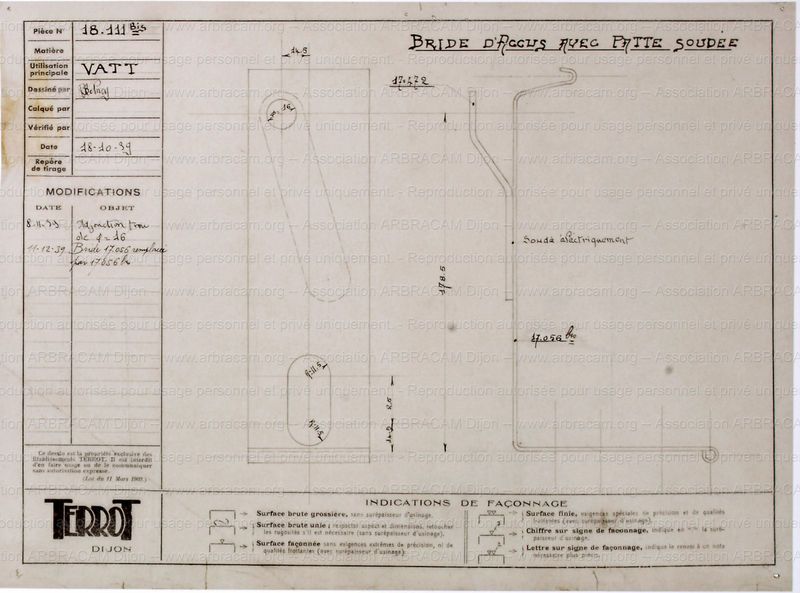 Pièce N° 18.111 Bis
Matière
Utilisation principale VATT
Dessiné par
Calqué par
Vérifié par
Date 18-10-39
Repère de tirage
MODIFICATIONS
DATE OBJET
8-11-39 Adjonction trou
de φ=16
11-12-39 Bride 17.056 remplacée
par 17.056 bis
Ce dessin est la propriété exclusive des
Etablissements TERROT. Il est interdit
d'en faire usage ou de le communiquer
sans autorisation expresse.
(Loi du 11 Mars 1902.)
TERROT
DIJON
BRIDE D'ACCUS AVEC PATTE SOUDÉE
14.5
17.472
16
178.5
Soudé électriquement
17.056 bis
R=11.5
R=11.5
25
INDICATIONS DE FAÇONNAGE
Surface brute grossière, sans surépaisseur d'usinage.
Surface brute unie ; respecter aspect et dimensions, retoucher
les rugosités s'il est nécessaire (sans surépaisseur d'usinage).
Surface façonnée sans exigences extrêmes de précision, ni de
qualités frottantes (avec surépaisseur d'usinage).
Surface finie, exigences spéciales de précision et de qualités
frottantes (avec surépaisseur d'usinage).
Chiffre sur signe de façonnage, indique en m/m la surépaisseur d'usinage.
Lettre sur signe de façonnage, indique le renvoi à un note
nécessaire plus précis.
www.arbracam.org – Association ARBRACAM Dijon – www.arbracam.org – Association ARBRACAM Dijon
Reproduction autorisée pour usage personnel et privé uniquement. - Reproduction autorisée pour usage personnel et privé uniquement.